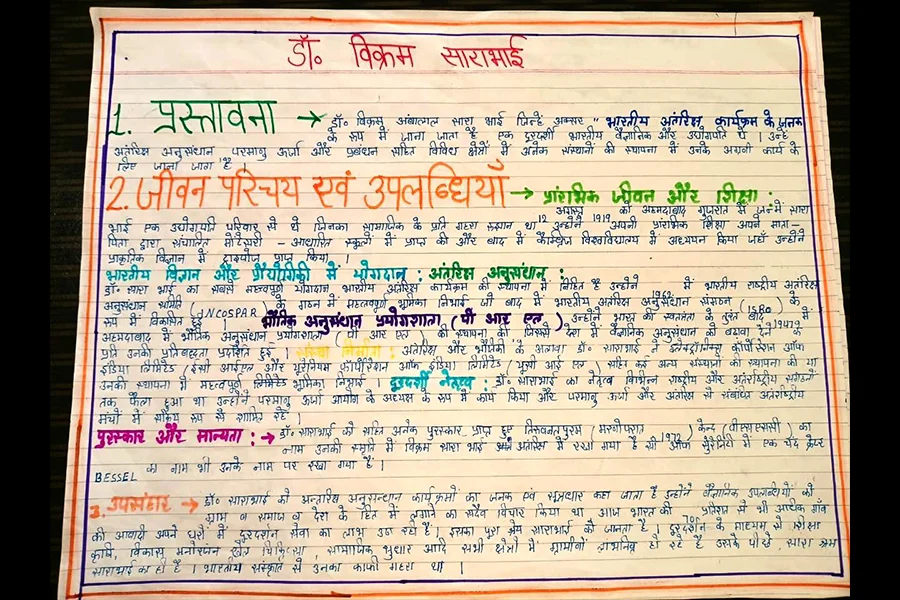 डॉ० विक्रम साराभाई
1. प्रस्तावना → डॉ० विक्रम अंबालाल सारा भाई जिन्हें अक्सर " भारतीय अंतरिक्ष कार्यक्रम के जनक
के रूप में जाना जाता है एक दूरदर्शी भारतीय वैज्ञानिक और उद्योगपति थे । उन्हें
अंतरिक्ष अनुसंधान परमाणु ऊर्जा और प्रबंधन सहित विविध क्षेत्रों में अनेक संस्थानों की स्थापना में उनके अग्रणी कार्य के
लिए जाना जाता है ।
2. जीवन परिचय एवं उपलब्धियाँ → प्रारंभिक जीवन और शिक्षा :
12 अगस्त 1919 को अहमदाबाद गुजरात में जन्में सारा
भाई एक उद्योगपति परिवार से थे जिनका सामाजिक के प्रति गहरा रुझान था उन्होंने अपनी प्रारंभिक शिक्षा अपने माता-
पिता द्वारा संचालित मोंटेसरी - आधारित स्कूल में प्राप्त की और बाद में कैम्ब्रिज विश्वविद्यालय में अध्ययन किया जहाँ उन्होंने
प्राकृतिक विज्ञान में ट्राइपोज प्राप्त किया ।
भारतीय विज्ञान और प्रौद्योगिकी में योगदान : अंतरिक्ष अनुसंधान :
डॉ० सारा भाई का सबसे महत्वपूर्ण योगदान भारतीय अंतरिक्ष कार्यक्रम की स्थापना में निहित है उन्होंने 1962 में भारतीय राष्ट्रीय अंतरिक्ष
अनुसंधान समिति (INCOSPAR) के गठन में महत्वपूर्ण भूमिका निभाई जो बाद में भारतीय अंतरिक्ष अनुसंधान संगठन (ISRO) के
रूप में विकसित हुई । भौतिक अनुसंधान प्रयोगशाला (पी आर एल) उन्होंने भारत की स्वतंत्रता के तुरंत बाद 1947 में
अहमदाबाद में भौतिक अनुसंधान प्रयोगशाला (पी आर एल) की स्थापना की जिससे देश में वैज्ञानिक अनुसंधान को बढ़ावा देने के
प्रति उनकी प्रतिबद्धता प्रदर्शित हुई । संस्था निर्माण : अंतरिक्ष और भौतिकी के अलावा डॉ० साराभाई ने इलेक्ट्रॉनिक्स कॉर्पोरेशन ऑफ
इंडिया लिमिटेड (ईसी आई एल) और यूरेनियम कॉर्पोरेशन ऑफ इंडिया लिमिटेड (यूसी आई एल) सहित कई अन्य संस्थानों की स्थापना की या
उनकी स्थापना में महत्वपूर्ण भूमिका निभाई । दूरदर्शी नेतृत्व : डॉ० साराभाई का नेतृत्व विभिन्न राष्ट्रीय और अंतर्राष्ट्रीय संगठनों
तक फैला हुआ था उन्होंने परमाणु ऊर्जा आयोग के अध्यक्ष के रूप में कार्य किया और परमाणु ऊर्जा और अंतरिक्ष से संबंधित अंतर्राष्ट्रीय
मंचों में सक्रिय रूप से शामिल रहे ।
पुरस्कार और मान्यता : → डॉ० साराभाई को सहित अनेक पुरस्कार प्राप्त हुए तिरुवनंतपुरम केन्द्र (वीएसएससी) का
नाम उनकी स्मृति में विक्रम सारा भाई अंतरिक्ष में रखा गया है सी ऑफ सेरेनिटी में एक चंद्र क्रेटर
BESSEL का नाम भी उनके नाम पर रखा गया है ।
3. उपसंहार → डॉ० साराभाई को अन्तरिक्ष अनुसन्धान कार्यक्रमों का जनक एवं सूत्रधार कहा जाता है उन्होंने वैज्ञानिक उपलब्धियों को
ग्राम व समाज व देश के हित में लगाने का सदैव विचार किया था आज भारत की 100 प्रतिशत से भी अधिक गाँव
की आबादी अपने घरों में दूरदर्शन सेवा का लाभ उठा रही है । इसका पूरा श्रेय साराभाई को जानता है । दूरदर्शन के माध्यम से शिक्षा
कृषि, विकास मनोरंजन खेल चिकित्सा, सामाजिक सुधार आदि सभी क्षेत्रों में ग्रामीणों लाभान्वित हो रहे है उसके पीछे सारा श्रम
साराभाई का ही है । भारतीय संस्कृति से उनका काफी गहरा था ।